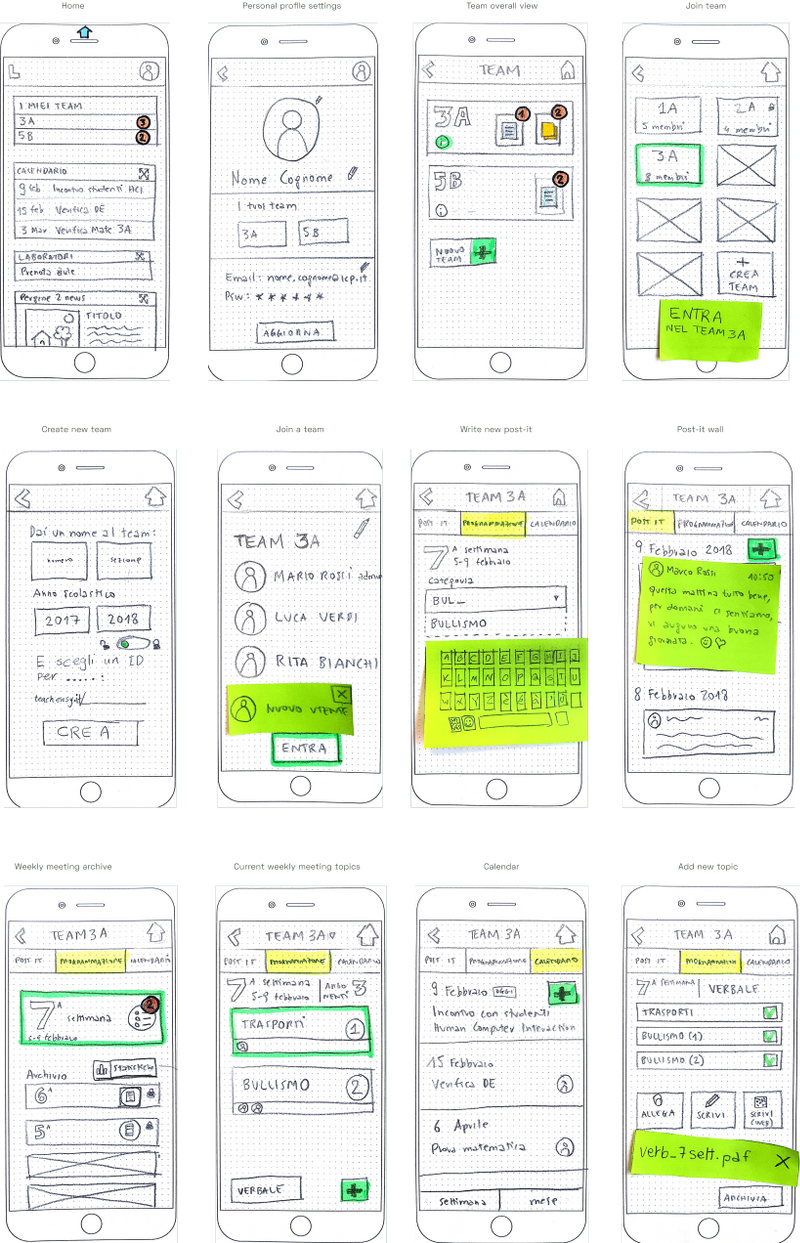 Home
I MIEI TEAM
3A 3
5B 2
CALENDARIO
9 feb Incontro studenti HCI
15 feb Verifica DE
3 Mar Verifica Mate 3A
LABORATORI
Prenota Aule
Pergine 2 news
TITOLO
Personal profile settings
Nome Cognome
I tuoi team
3A 5B
Email: nome.cognome@icp.it
Psw: ******
AGGIORNA
Team overall view
TEAM
3A 1 2
5B 2
NUOVO
TEAM
Join team
1A 2A
5 membri 4 membri
3A
8 membri
+
CREA
TEAM
ENTRA
NEL TEAM 3A
Create new team
Dai un nome al team:
numero sezione
Anno Scolastico
2017 2018
E scegli un ID
per .....:
CREA
Join a team
TEAM 3A
MARIO ROSSI admin
LUCA VERDI
RITA BIANCHI
NUOVO UTENTE
ENTRA
Write new post-it
TEAM 3A
POST IT PROGRAMMAZIONE CALENDARIO
7ª settimana
5-9 febbraio
categoria
BUL_
BULLISMO
Post-it wall
TEAM 3A
POST IT PROGRAMMAZIONE CALENDARIO
9 Febbraio 2018
Marco Rossi 10:50
Questa mattina tutto bene,
per domani ci sentiamo,
vi auguro una buona
giornata.
8 Febbraio 2018
Weekly meeting archive
TEAM 3A
POST IT PROGRAMMAZIONE CALENDARIO
7ª settimana 2
5-9 febbraio
Archivio
6ª
5ª
Current weekly meeting topics
TEAM 3A
POST IT PROGRAMMAZIONE CALENDARIO
7ª settimana ARGO 3
5-9 febbraio MENTI
TRASPORTI 1
BULLISMO 2
VERBALE
Calendar
TEAM 3A
POST IT PROGRAMMAZIONE CALENDARIO
9 Febbraio OGGI
Incontro con studenti
Human Computer Interaction
15 Febbraio
Verifica DE
6 Aprile
Prova matematica
settimana mese
Add new topic
TEAM 3A
POST IT PROGRAMMAZIONE CALENDARIO
7ª SETTIMANA VERBALE
TRASPORTI
BULLISMO (1)
BULLISMO (2)
ALLEGA SCRIVI SCRIVI
verb_7sett.pdf X
ARCHIVIA